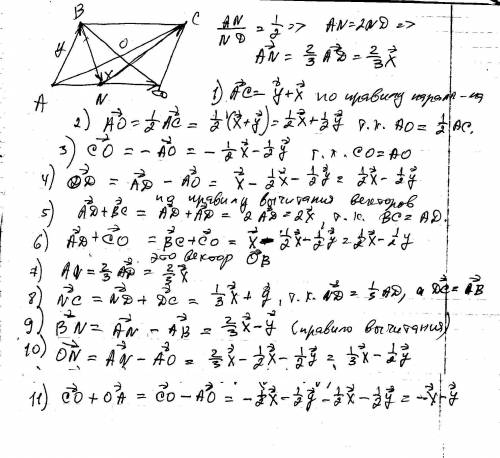 B C
y O
x
A N D
AN/ND = 1/2 => AN = 2ND =>
AN⃗ = 2/3 AD⃗ = 2/3 x⃗
1) AC⃗ = y⃗ + x⃗ по правилу парал-ма
2) AO⃗ = 1/2 AC⃗ = 1/2 (x⃗+y⃗) = 1/2x⃗ + 1/2y⃗ т.к. AO = 1/2 AC.
3) CO⃗ = -AO⃗ = -1/2x⃗ - 1/2y⃗ т.к. CO = AO
4) OD⃗ = AD⃗ - AO⃗ = x⃗ - 1/2x⃗ - 1/2y⃗ = 1/2x⃗ - 1/2y⃗
по правилу вычитания векторов
5) AD⃗ + BC⃗ = AD⃗ + AD⃗ = 2AD⃗ = 2x⃗ т.к. BC = AD.
6) AD⃗ + CO⃗ = BC⃗ + CO⃗ = x⃗ - 1/2x⃗ - 1/2y⃗ = 1/2x⃗ - 1/2y
это вектор OB⃗
7) AN = 2/3 AD⃗ = 2/3 x⃗
8) NC⃗ = ND⃗ + DC⃗ = 1/3x⃗ + y⃗, т.к. ND⃗ = 1/3 AD, а DC⃗ = AB⃗
9) BN⃗ = AN⃗ - AB⃗ = 2/3x⃗ - y⃗ (правило вычитания)
10) ON⃗ = AN⃗ - AO⃗ = 2/3x⃗ - 1/2x⃗ - 1/2y⃗ = 1/3x⃗ - 1/2y⃗
11) CO⃗ + OA⃗ = CO⃗ - AO⃗ = -1/2x⃗ - 1/2y⃗ - 1/2x⃗ - 1/2y⃗ = -x⃗ - y⃗